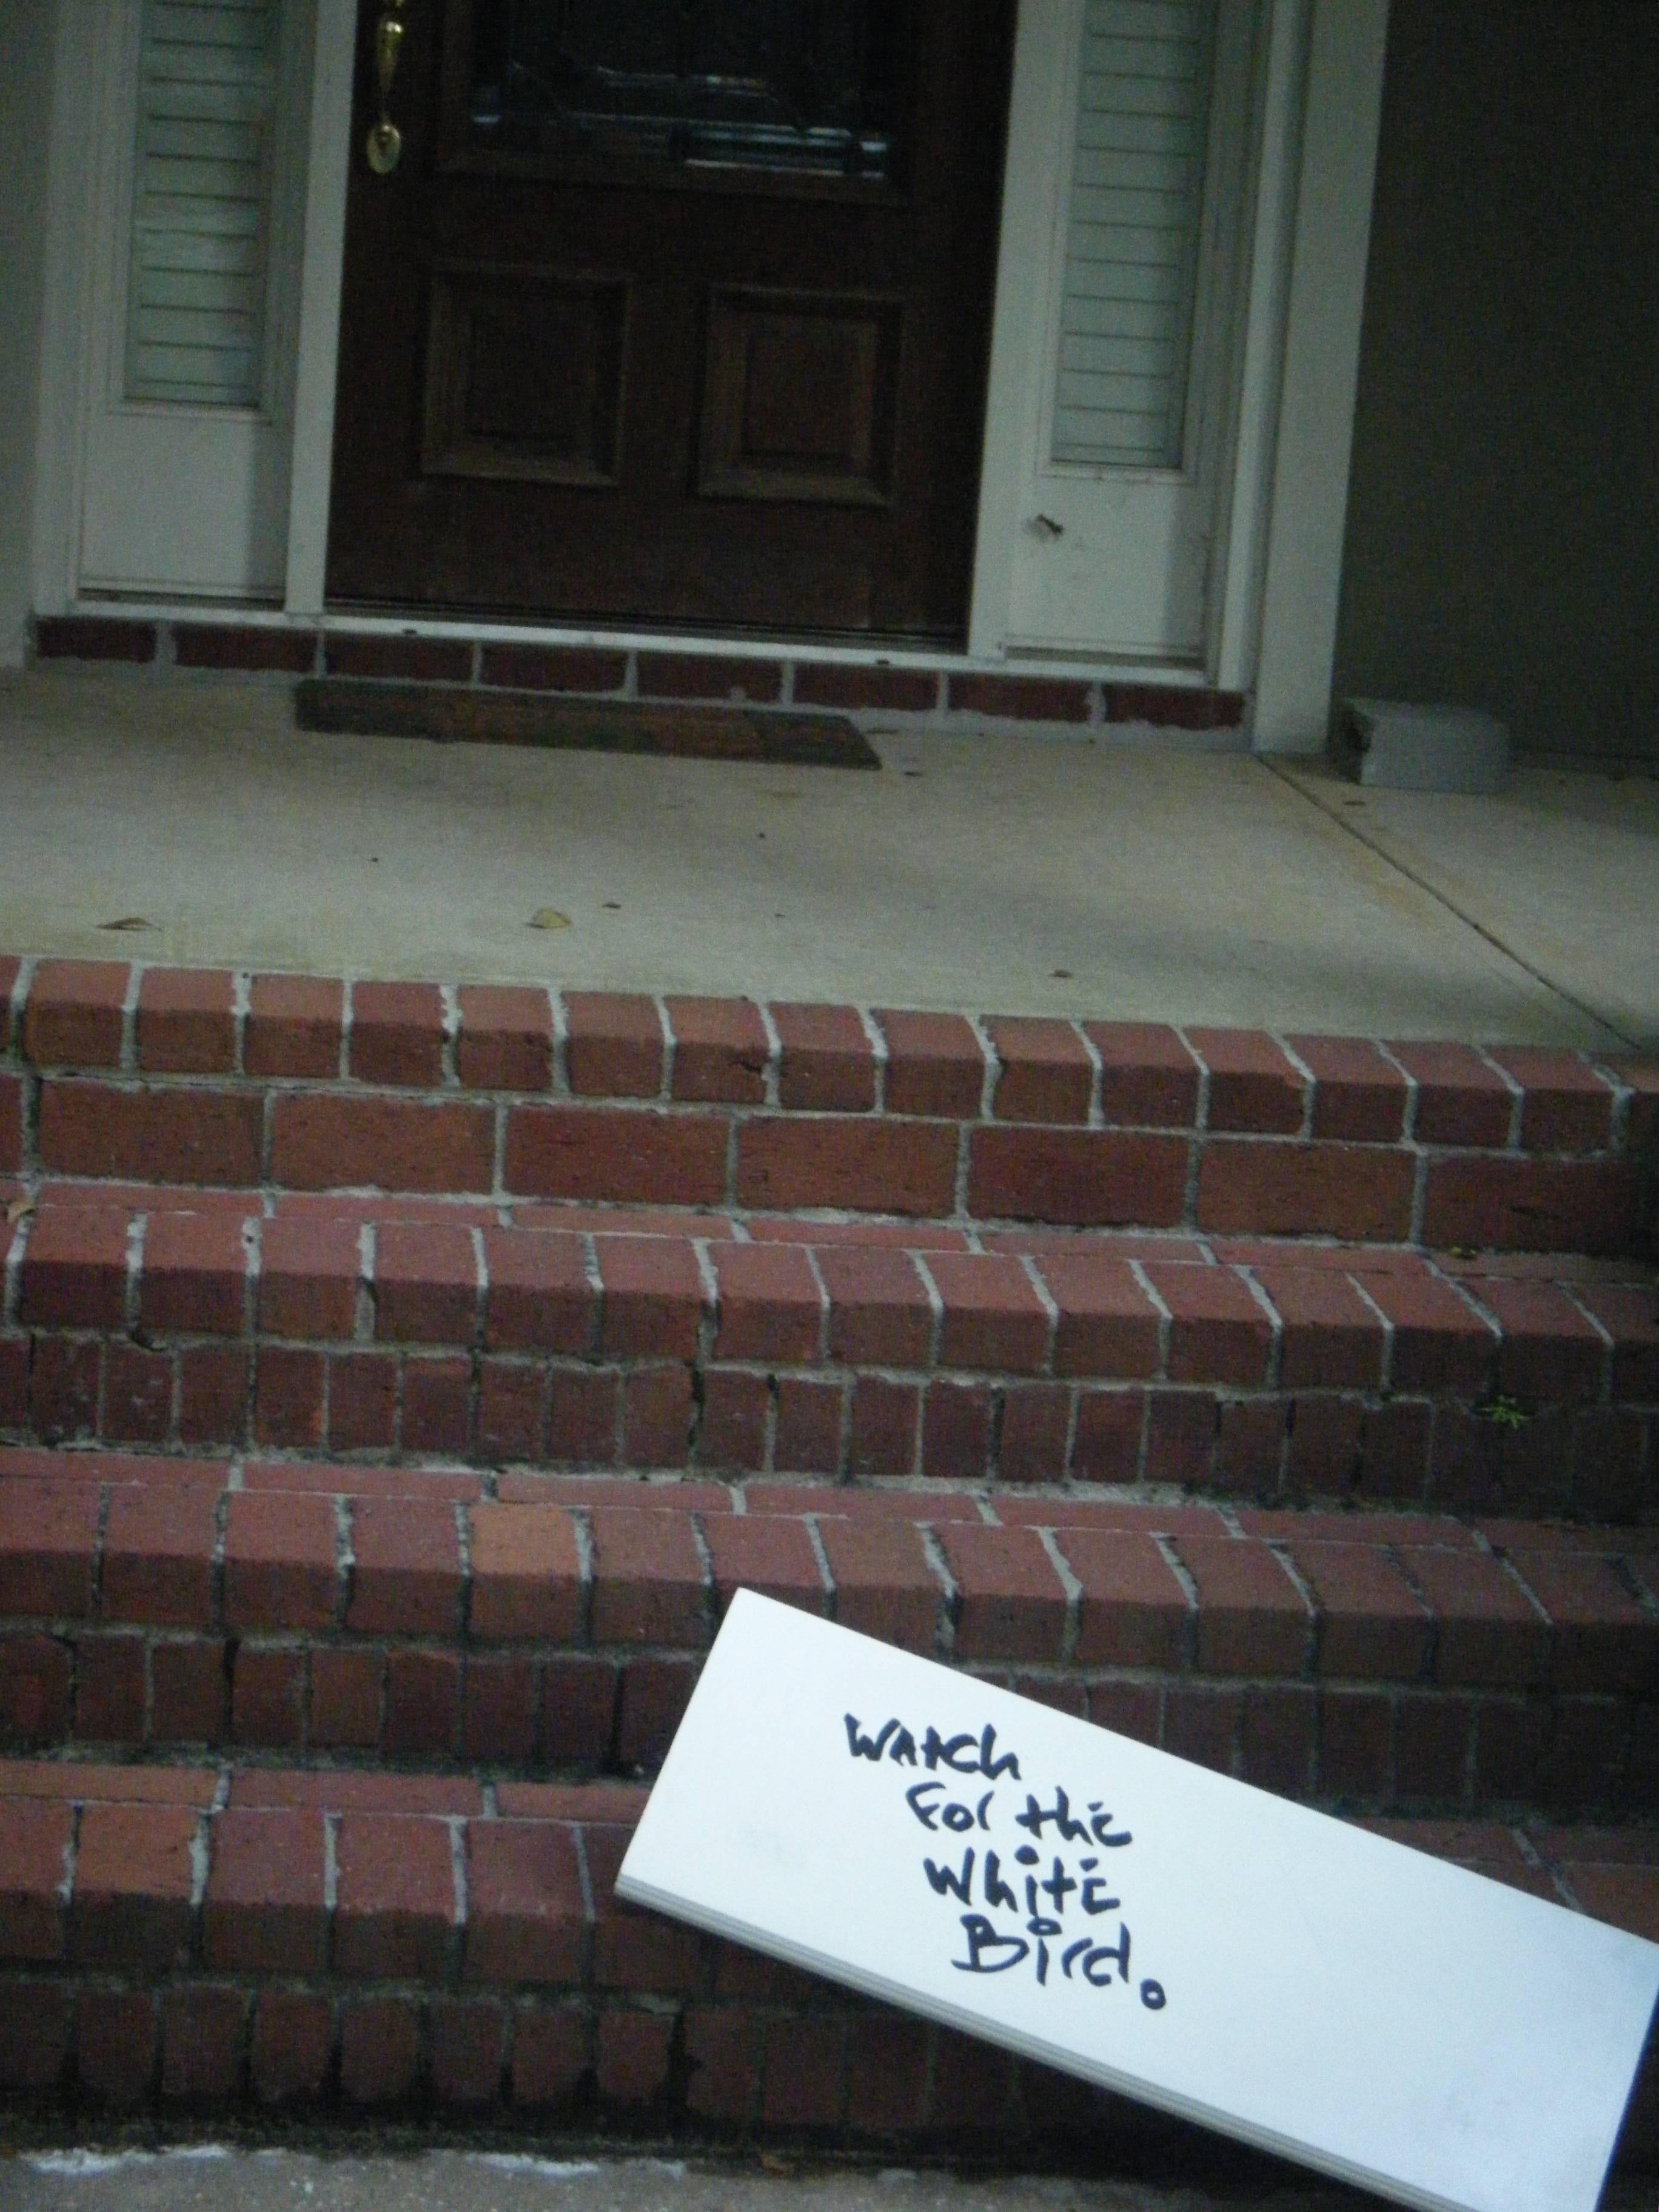 Watch
For the
White
Bird.